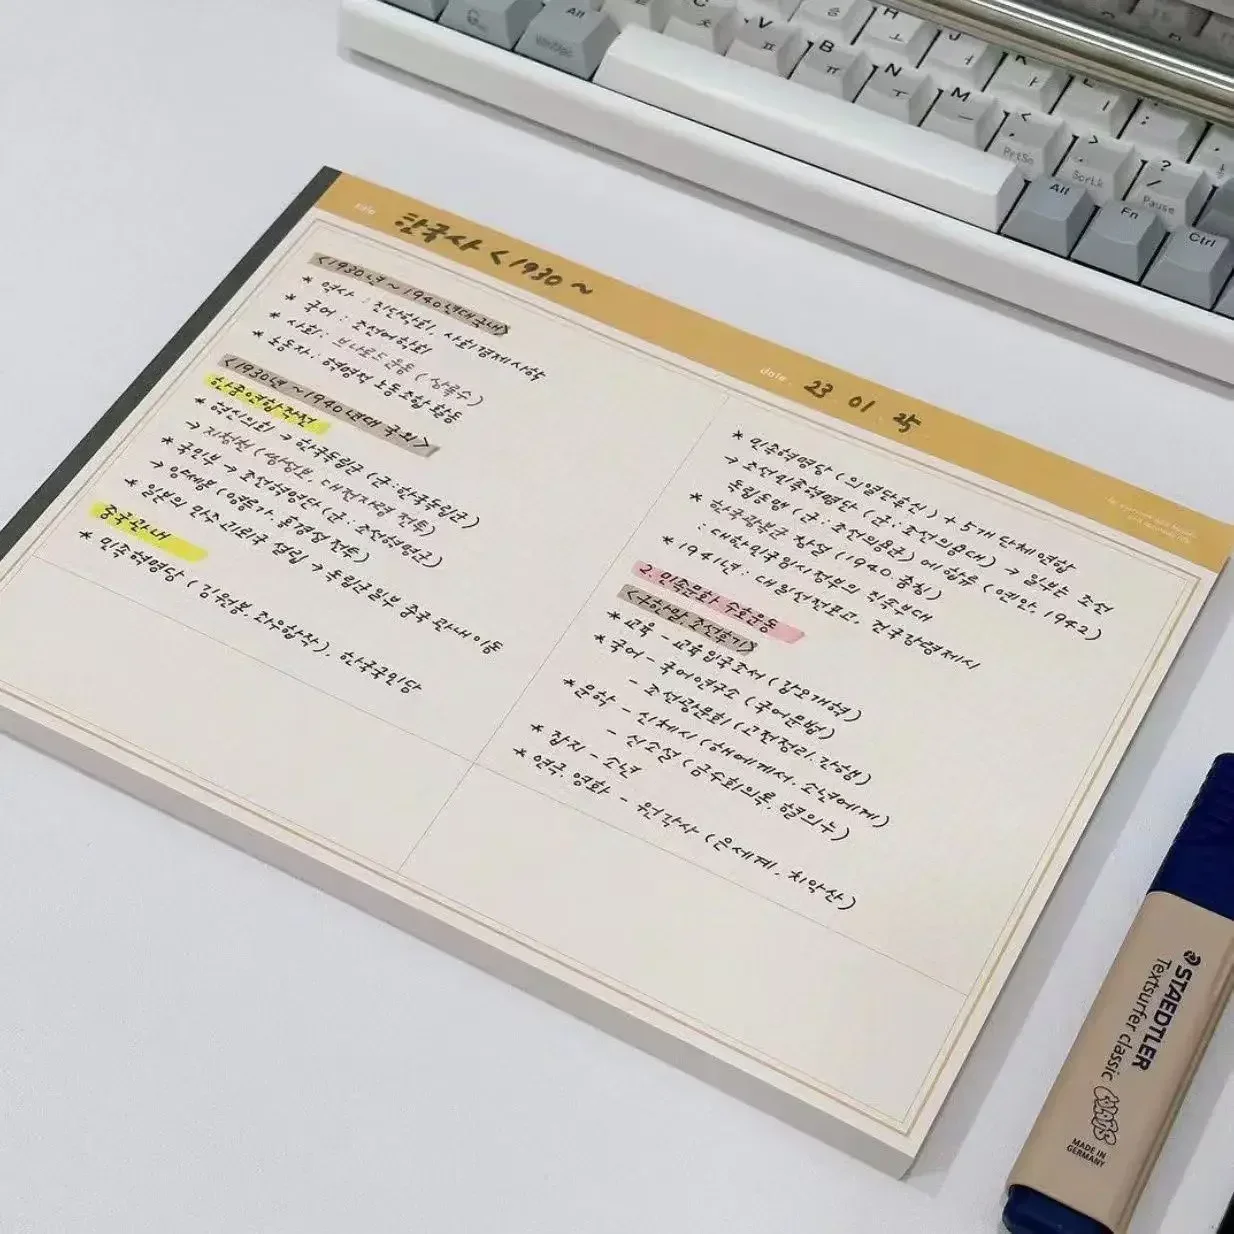 title
한국사 < 1930 ~
date
23 01 25
<1930년 ~ 1940년대 국내>
* 역사 : 진단학회, 사회경제사학
* 국어 : 조선어학회
* 사회 : 브나로드 운동 (상록수)
* 노동자 : 혁명적 노동조합 활동
<1930년 ~ 1940년대 국외>
한중연합작전
* 혁신의회 → 한국독립군 (군 : 한국독립군)
→ 지청천 (쌍성보, 대전자령 전투)
* 국민부 → 조선혁명단 (군 : 조선혁명군)
→ 양세봉 (영릉가 흥경성 전투)
* 일본의 만주 괴뢰국 설립 → 독립군 일부 중국 관내 이동
중국관내
* 민족혁명당 (김원봉, 좌우합작), 한국국민당
* 민족혁명당 (의열단 후신) + 5개 단체 연합
→ 조선민족혁명단 (군 : 조선의용대) → 일부는 조선
독립동맹 (군 : 조선의용군) 에 합류 (연안, 1942)
* 한국광복군 창설 (1940 충칭)
: 대한민국임시정부의 직속부대
* 1941년 : 대일선전포고, 건국강령제시
2. 민족문화 수호운동
조선후기>
* 교육 - 교육입국조서 (갑오개혁)
* 국어 - 국어연구소 (국어문법)
- 조선광문회 (고전정리.간행)
* 문학 - 신체시 (해에게서 소년에게)
- 신소설 (금수회의록, 혈의누)
* 잡지 - 소년
* 연극, 영화 - 원각사 (은세계, 치악산)
Alt
C ㅊ
V ㅍ
B ㅠ
N ㅜ
M ㅡ
H ㅗ
J ㅓ
L ㅣ
< ,
PrtSc
> .
ScrLk
? /
Pause
Alt
Fn
Ctrl
STAEDTLER
Textsurfer classic
MADE IN
GERMANY